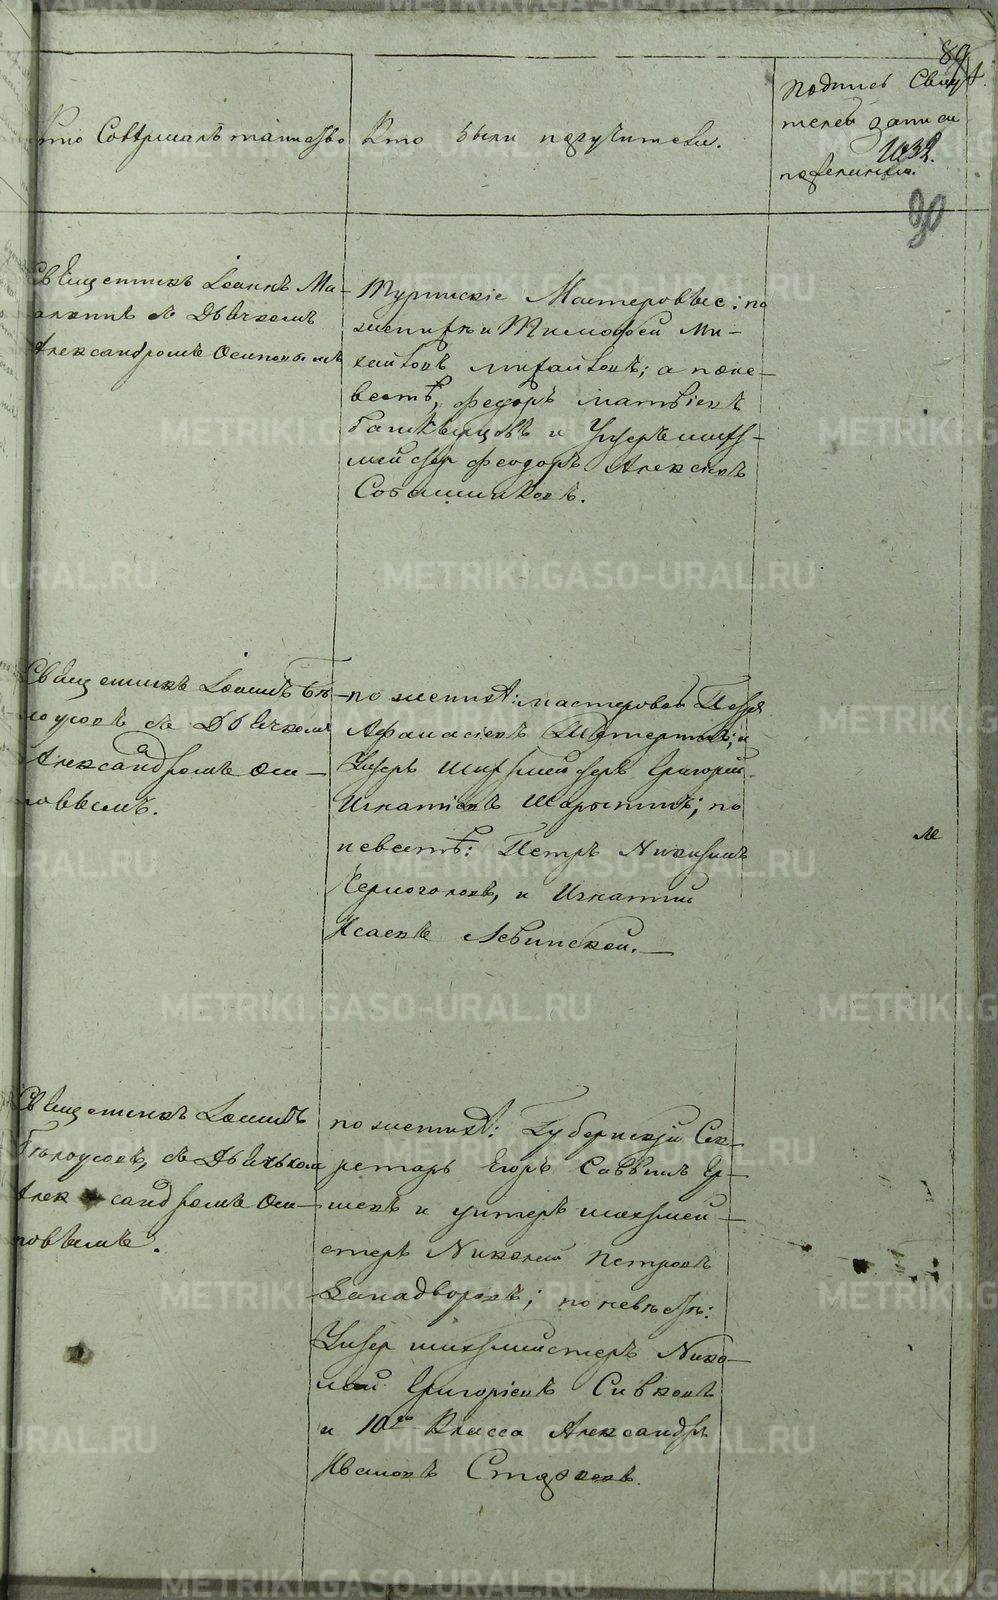 89
Кто Совершалъ таинство
Кто были поручители.
Подпись Свидѣ
телей записи
по желанію.
90
Священникъ Іоаннъ Ма-
съ Дьячкомъ
Александромъ Осиповымъ
Туринскіе Мастеровые: по
женихѣ Тимофей Ми-
хайловъ Михайловъ; а по не-
вестѣ, Федоръ Матвіевъ
и Унтеръ шихт-
мейстер Феодоръ Алексіевъ
Собашниковъ.
Священникъ Іоаннъ Бѣ-
лоусовъ съ Дьячкомъ
Александромъ Оси-
повымъ.
по женихѣ: мастеровой Петръ
Афанасіевъ и
Унтеръ Шихтмейстеръ Григорій
Игнатіевъ по
невестѣ: Петръ Никитинъ
Черноголовъ, и Игнатий
Исаевъ Левинской.
Священникъ Іоаннъ
Бѣлоусовъ, съ Дьячкомъ
Александромъ Оси-
повымъ.
по женихѣ: Губернскій Сек-
ретарь Егоръ Саввинъ Ер-
шевъ и унтеръ шихтмей-
стеръ Николай Петровъ
Западворовъ; по невѣстѣ:
Унтер шихтмейстеръ Нико-
лай Григоріевъ Сивковъ
и 10го Класса Александръ
Ивановъ
METRIKI.GASO-URAL.RU